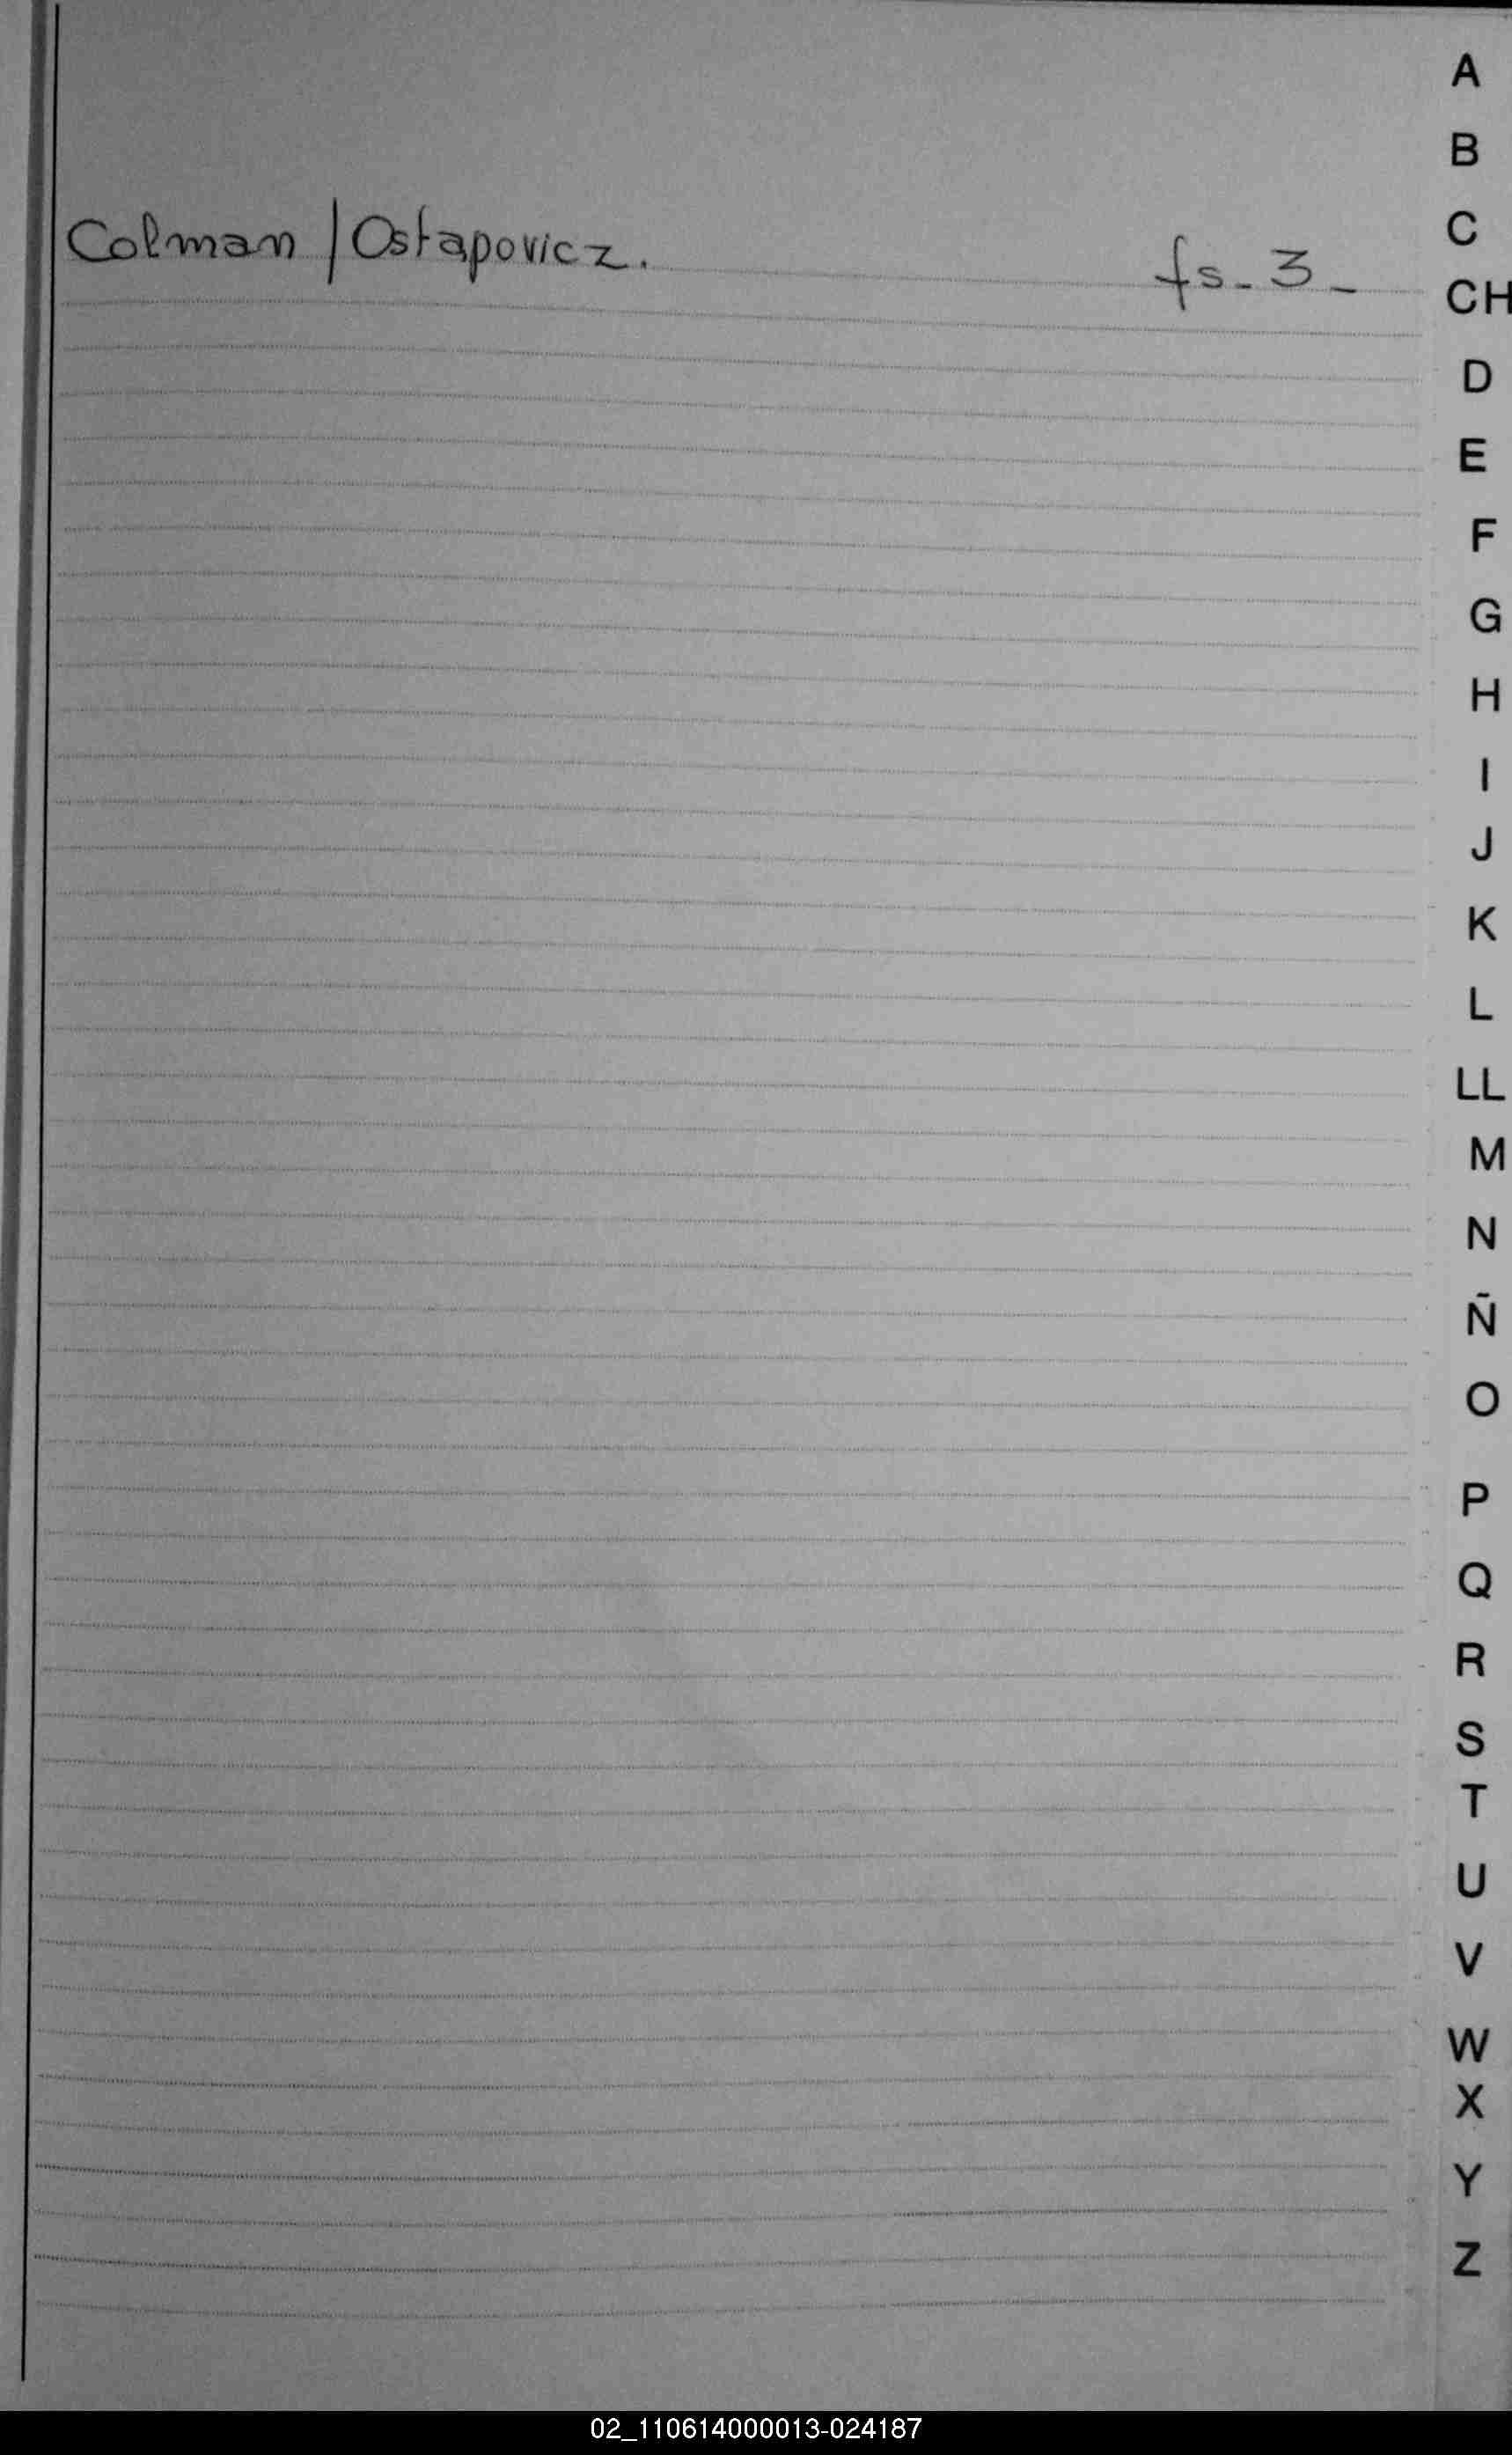 Colman / Ostapovicz.
fs_ 3_
A
B
C
CH
D
E
F
G
H
I
J
K
L
LL
M
N
Ñ
O
P
Q
R
S
T
U
V
W
X
Y
Z
02_110614000013-024187